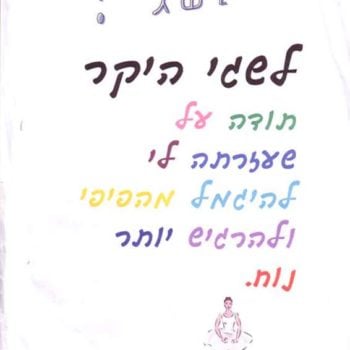 לשגי היקר
תודה על
שעזרתה לי
להיגמל מהפיפי
ולהרגיש יותר
נוח.